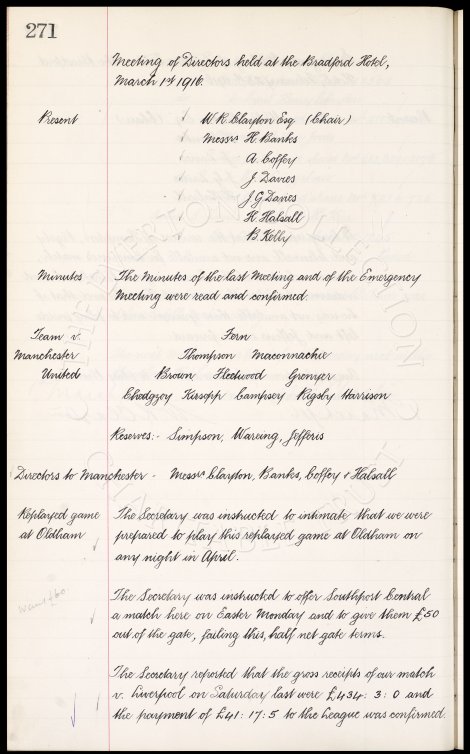 271
Meeting of Directors held at the Bradford Hotel,
March 1st 1916.
Present
W. R. Clayton Esq (Chair)
Messrs H. Banks
A. Coffey
J. Davies
J. G. Davies
H. Halsall
B. Kelly
Minutes
The Minutes of the last Meeting and of the Emergency
Meeting were read and confirmed.
Team v.
Manchester
United
Fern
Thompson Maconnachie
Brown Fleetwood Grenyer
Chedgzoy Kirsopp Campsey Rigsby Harrison
Reserves:- Simpson, Wareing, Jefferis
Directors to Manchester - Messrs Clayton, Banks, Coffey & Halsall
Replayed game
at Oldham
The Secretary was instructed to intimate that we were
prepared to play this replayed game at Oldham on
any night in April.
want £60
The Secretary was instructed to offer Southport Central
a match here on Easter Monday and to give them £50
out of the gate, failing this, half net gate terms.
The Secretary reported that the gross receipts of our match
v. Liverpool on Saturday last were £434: 3: 0 and
the payment of £41: 17: 5 to the League was confirmed.